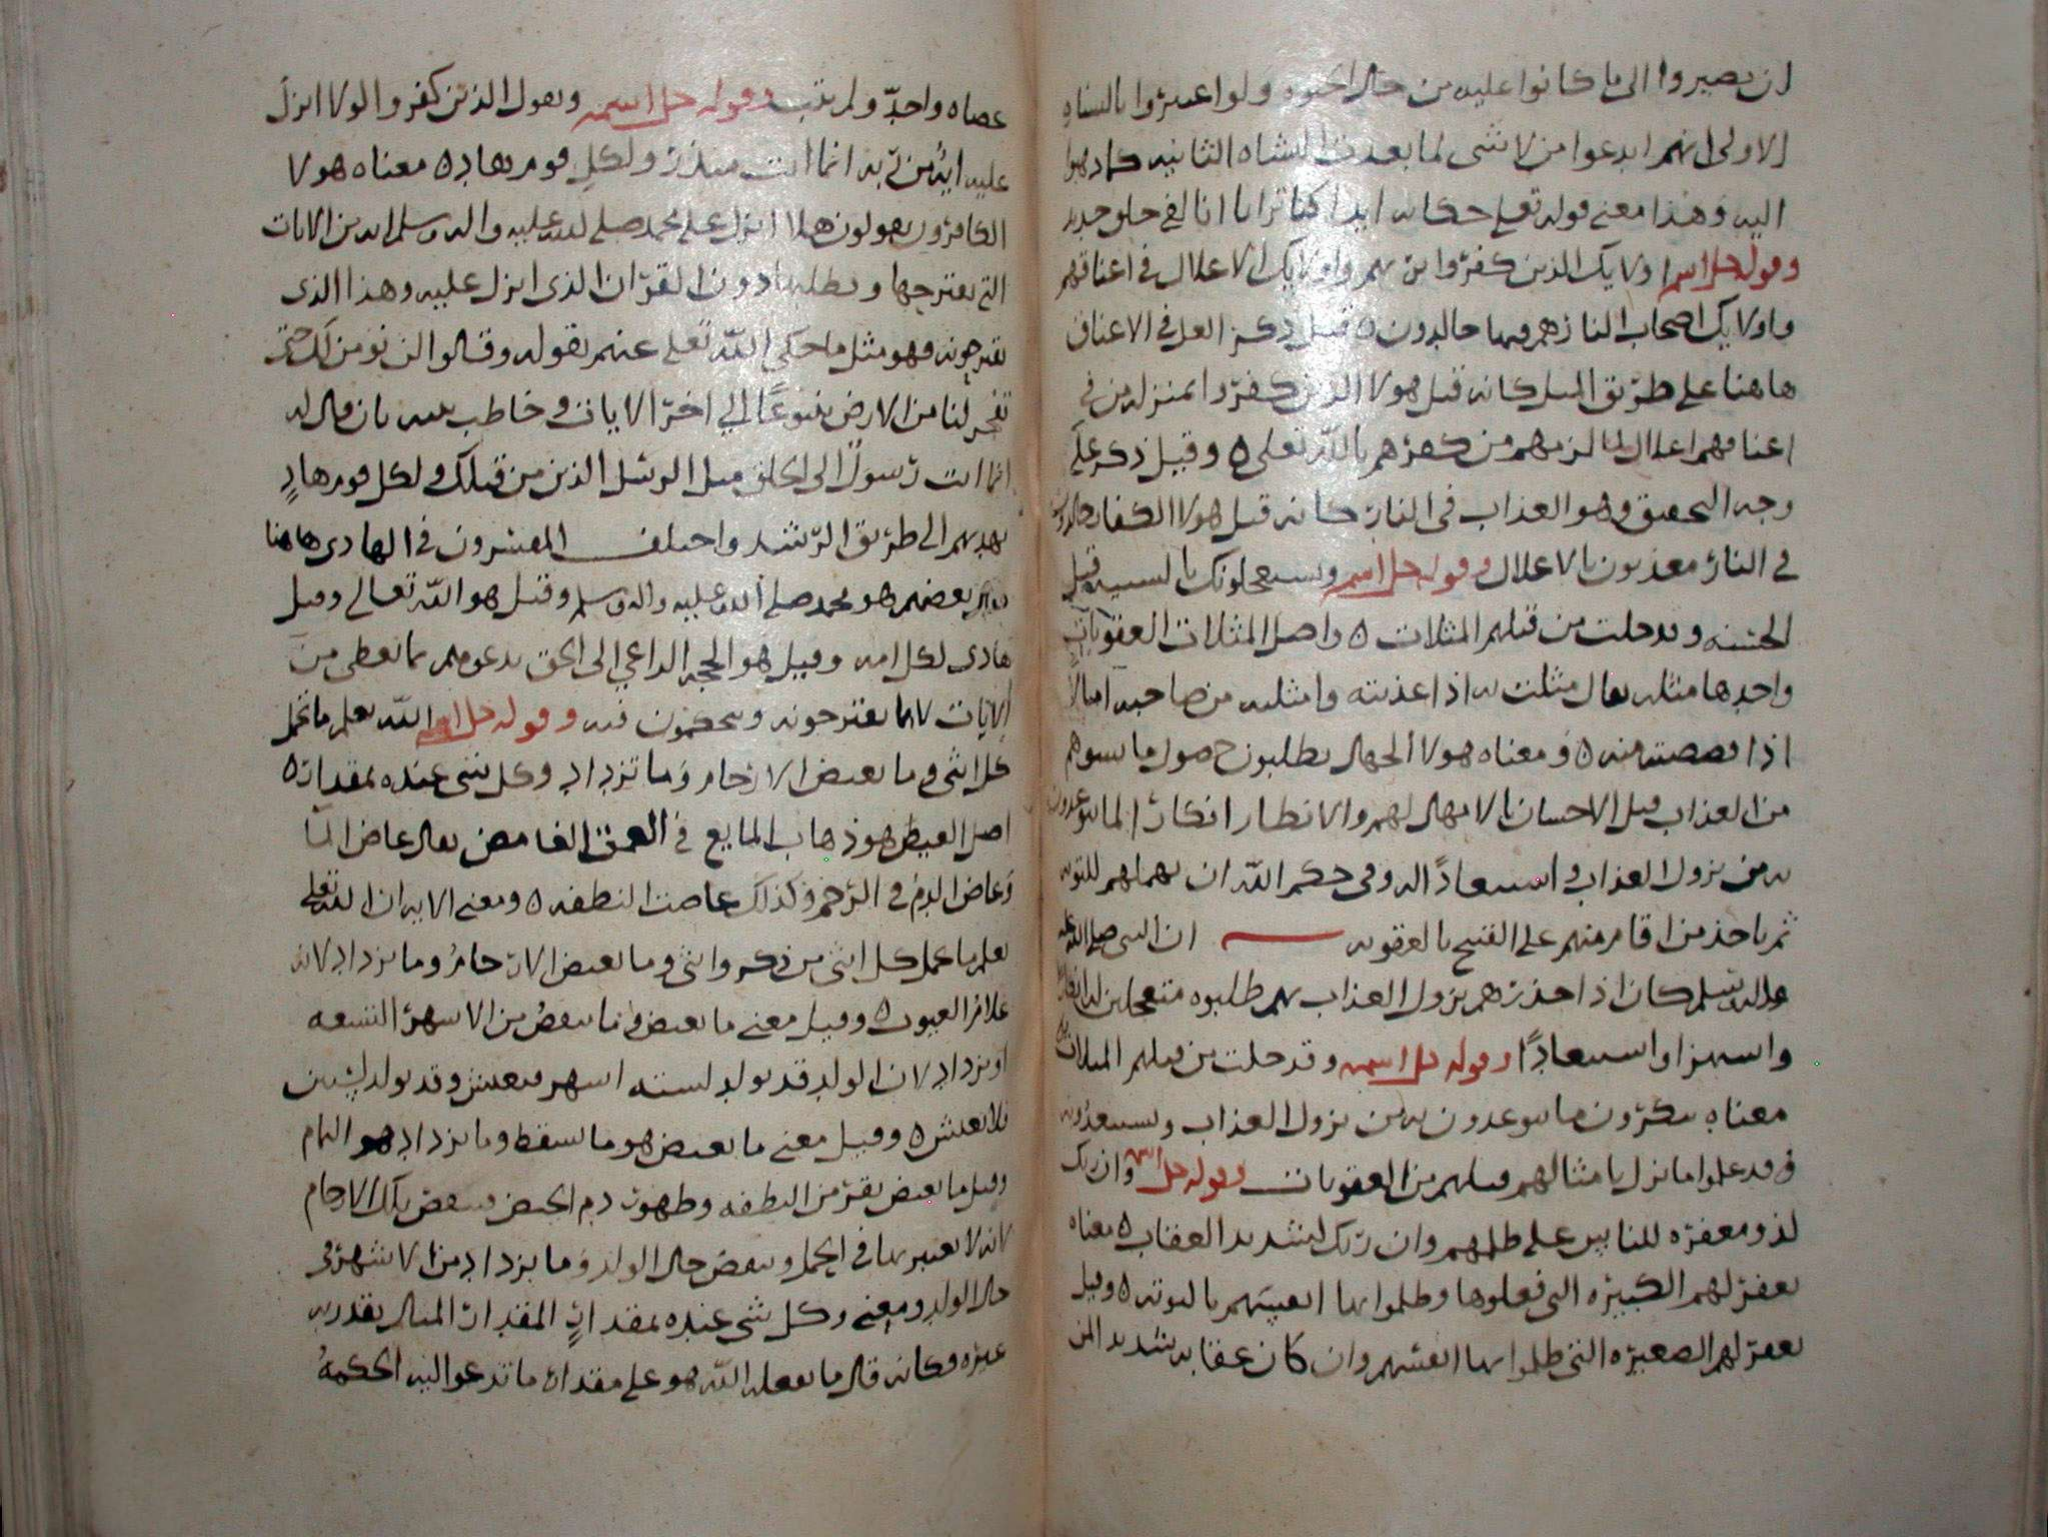 ان يصيروا الى ما كانوا عليه من حال الحيوه ولو اعتبروا بالنشاه
الاولى انهم ابدعوا من لا شى لما بعدت النشاه الثانيه كما ذهبوا
اليه وهذا معنى قوله تعلى حكايه ايذا كنا ترابا انا لفى خلق جديد
وقوله جل اسمه اولايك الذين كفروا بربهم واولايك الاغلال فى اعناقهم
واولايك اصحاب النار هم فيها خالدون ه قيل ذكر الغل فى الاعناق
هاهنا على طريق المثل كانه قيل هولا الذين كفروا بمنزله من فى
اعناقهم اغلال لما لزمهم من كفرهم بالله تعلى ه وقيل ذكر على
وجه التحقيق وهو العذاب فى النار كانه قيل هولا الكفار خالدون
فى النار معذبون بالاغلال وقوله جل اسمه ويستعجلونك بالسييه قبل
الحسنه وقد خلت من قبلهم المثلات ه واصل المثلات العقوبات
واحدها مثله يقال مثلت به اذا عذبته وامثلته من صاحبه امثالا
اذا قصصته منه ه ومعناه هولا الجهال يطلبون حصول ما يسوهم
من العذاب قبل الاحسان بالامهال لهم والانظار انكارا لما يتوعدون
به من نزول العذاب واستبعادا له وفى حكم الله ان يمهلهم للتوبه
ثم ياخذ من اقام منهم على القبيح بالعقوبه ان النبى صلى الله عليه
واله وسلم كان اذا حذرهم نزول العذاب بهم طلبوه متعجلين له انكارا
واستهزا واستبعادا وقوله جل اسمه وقد خلت من قبلهم المثلات
معناه ينكرون ما يتوعدون به من نزول العذاب ويستبعدونه
وقد علموا ما نزل بامثالهم قبلهم من العقوبات وقوله جل اسمه وان ربك
لذو مغفره للناس على ظلمهم وان ربك لشديد العقاب ه معناه
يغفر لهم الكبيره التى فعلوها وظلموا بها انفسهم بالتوبه ه وقيل
يغفر لهم الصغيره التى ظلموا بها انفسهم وان كان عقابه شديد المن
عصاه واحد ولم يتب وقوله جل اسمه ويقول الذين كفروا لولا انزل
عليه ايه من ربه انما انت منذر ولكل قوم هاد ه معناه هولا
الكافرون يقولون هلا انزل على محمد صلى الله عليه واله وسلم ايه من الايات
التى يقترحها ويطلبها دون القران الذى انزل عليه وهذا الذى
يقترحونه فهو مثل ما حكى الله تعلى عنهم بقوله وقالوا لن نومن لك حتى
تفجر لنا من الارض ينبوعا الى اخر الايات وخاطب نبيه بان قال له
انما انت رسول الى الخلق مثل الرسل الذين من قبلك ولكل قوم هاد
يهديهم الى طريق الرشد واختلف المفسرون فى الهادى هاهنا
بعضهم هو محمد صلى الله عليه واله وسلم وقيل هو الله تعالى وقيل
هادى لكل امه وقيل هو الحجه الداعى الى الحق يدعوهم بما يعطى من
الايات لا بما يقترحونه ويتحكمون فيه وقوله جل اسمه الله يعلم ما تحمل
كل انثى وما تغيض الارحام وما تزداد وكل شى عنده بمقدار ه
اصل الغيض هو ذهاب المايع فى العمق الغامض يقال غاض الما
وغاض الدم فى الرحم وكذلك غاضت النطفه ه ومعنى الايه ان الله تعلى
يعلم ما تحمل كل انثى من ذكر وانثى وما تغيض الارحام وما تزداد لانه
علام الغيوب ه وقيل معنى ما تغيض هو ما ينقص من الاشهر التسعه
او يزداد لان الولد قد يولد لسته اشهر فيعيش وقد يولد لسنتين
فلا يعيش ه وقيل معنى ما تغيض هو ما تسقط وما تزداد هو التام
وقيل ما تغيض بقر من النطفه وظهور دم الحيض فينقص تلك الايام
لانه لا يعتبر بها فى الحمل وينقص حال الولد وما يزداد من الاشهر فى
حال الولد ومعنى وكل شى عنده بمقدار المقدار المثال يقدر به
غيره فكانه قال ما يفعله الله هو على مقدار ما تدعو اليه الحكمه